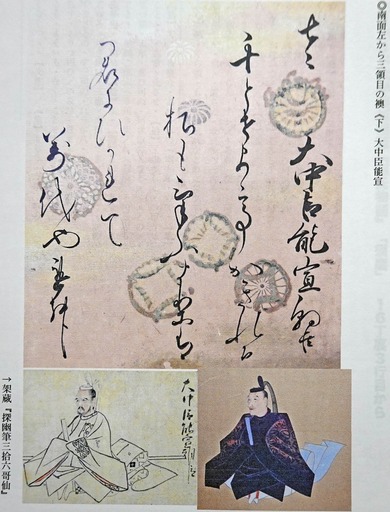 ◎南面左から三領目の襖《下》大中臣能宣
大中臣能宣朝臣
千とせまて
かきれる
松もけふよりは
君にひかれて
萬代や
大中臣能宣朝臣
→架蔵『探幽筆三拾六哥仙』